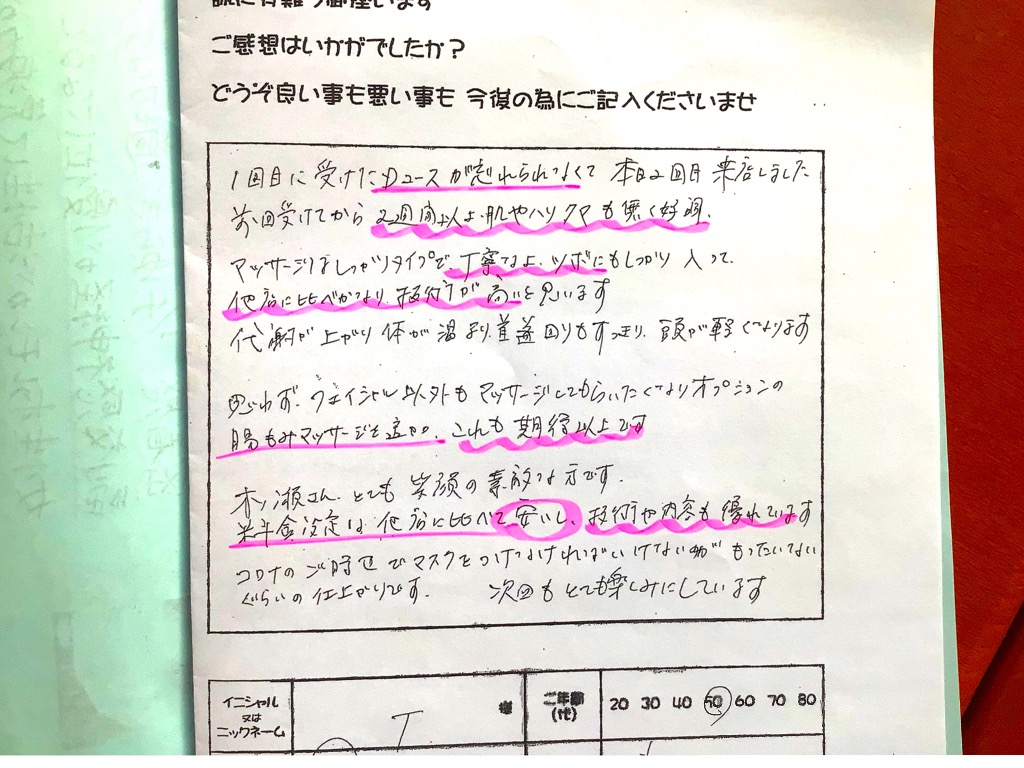 誠に有難う御座います
ご感想はいかがでしたか？
どうぞ良い事も悪い事も 今後の為にご記入くださいませ
1回目に受けたDコースが忘れられなくて 本日2回目 来店しました
前回受けてから 2週間以上 肌やハリ クマも無く好調、
マッサージはしっかりタイプで、丁寧なよ、ツボにもしっかり 入って、
他店に比べかなり、技術が高いと思います
代謝が上がり 体が温まり、首回りもすっきり、頭が軽くなります
思わず、フェイシャル以外も マッサージしてもらいたくなりオプションの
腸もみマッサージを追加、これも 期待以上です
木ノ瀬さん、とても 笑顔の素敵な方です。
料金設定は 他店に比べて 安いし、技術や内容も 優れています
コロナのご時世でマスクをつけなければいけないのが もったいない
ぐらいの仕上がりです。 次回も とても楽しみにしています
イニシャル
又は
ニックネーム
T 様
ご年齢
(代)
20 30 40 50 60 70 80